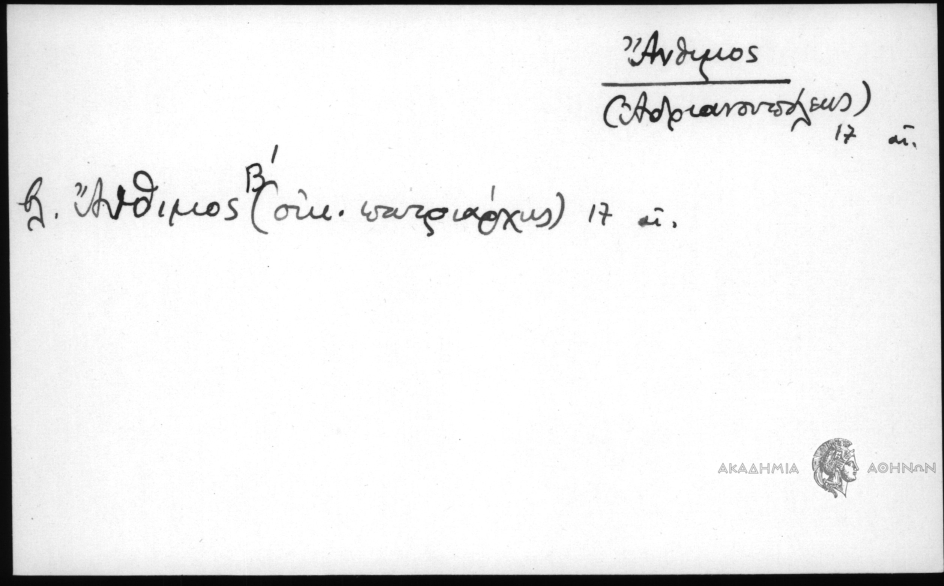 Ἄνθιμος
(Ἀδριανουπόλεως)
17 αἰ.
βλ. Ἄνθιμος Β' (οἰκ. πατριάρχης) 17 αἰ.
ΑΚΑΔΗΜΙΑ ΑΘΗΝΩΝ